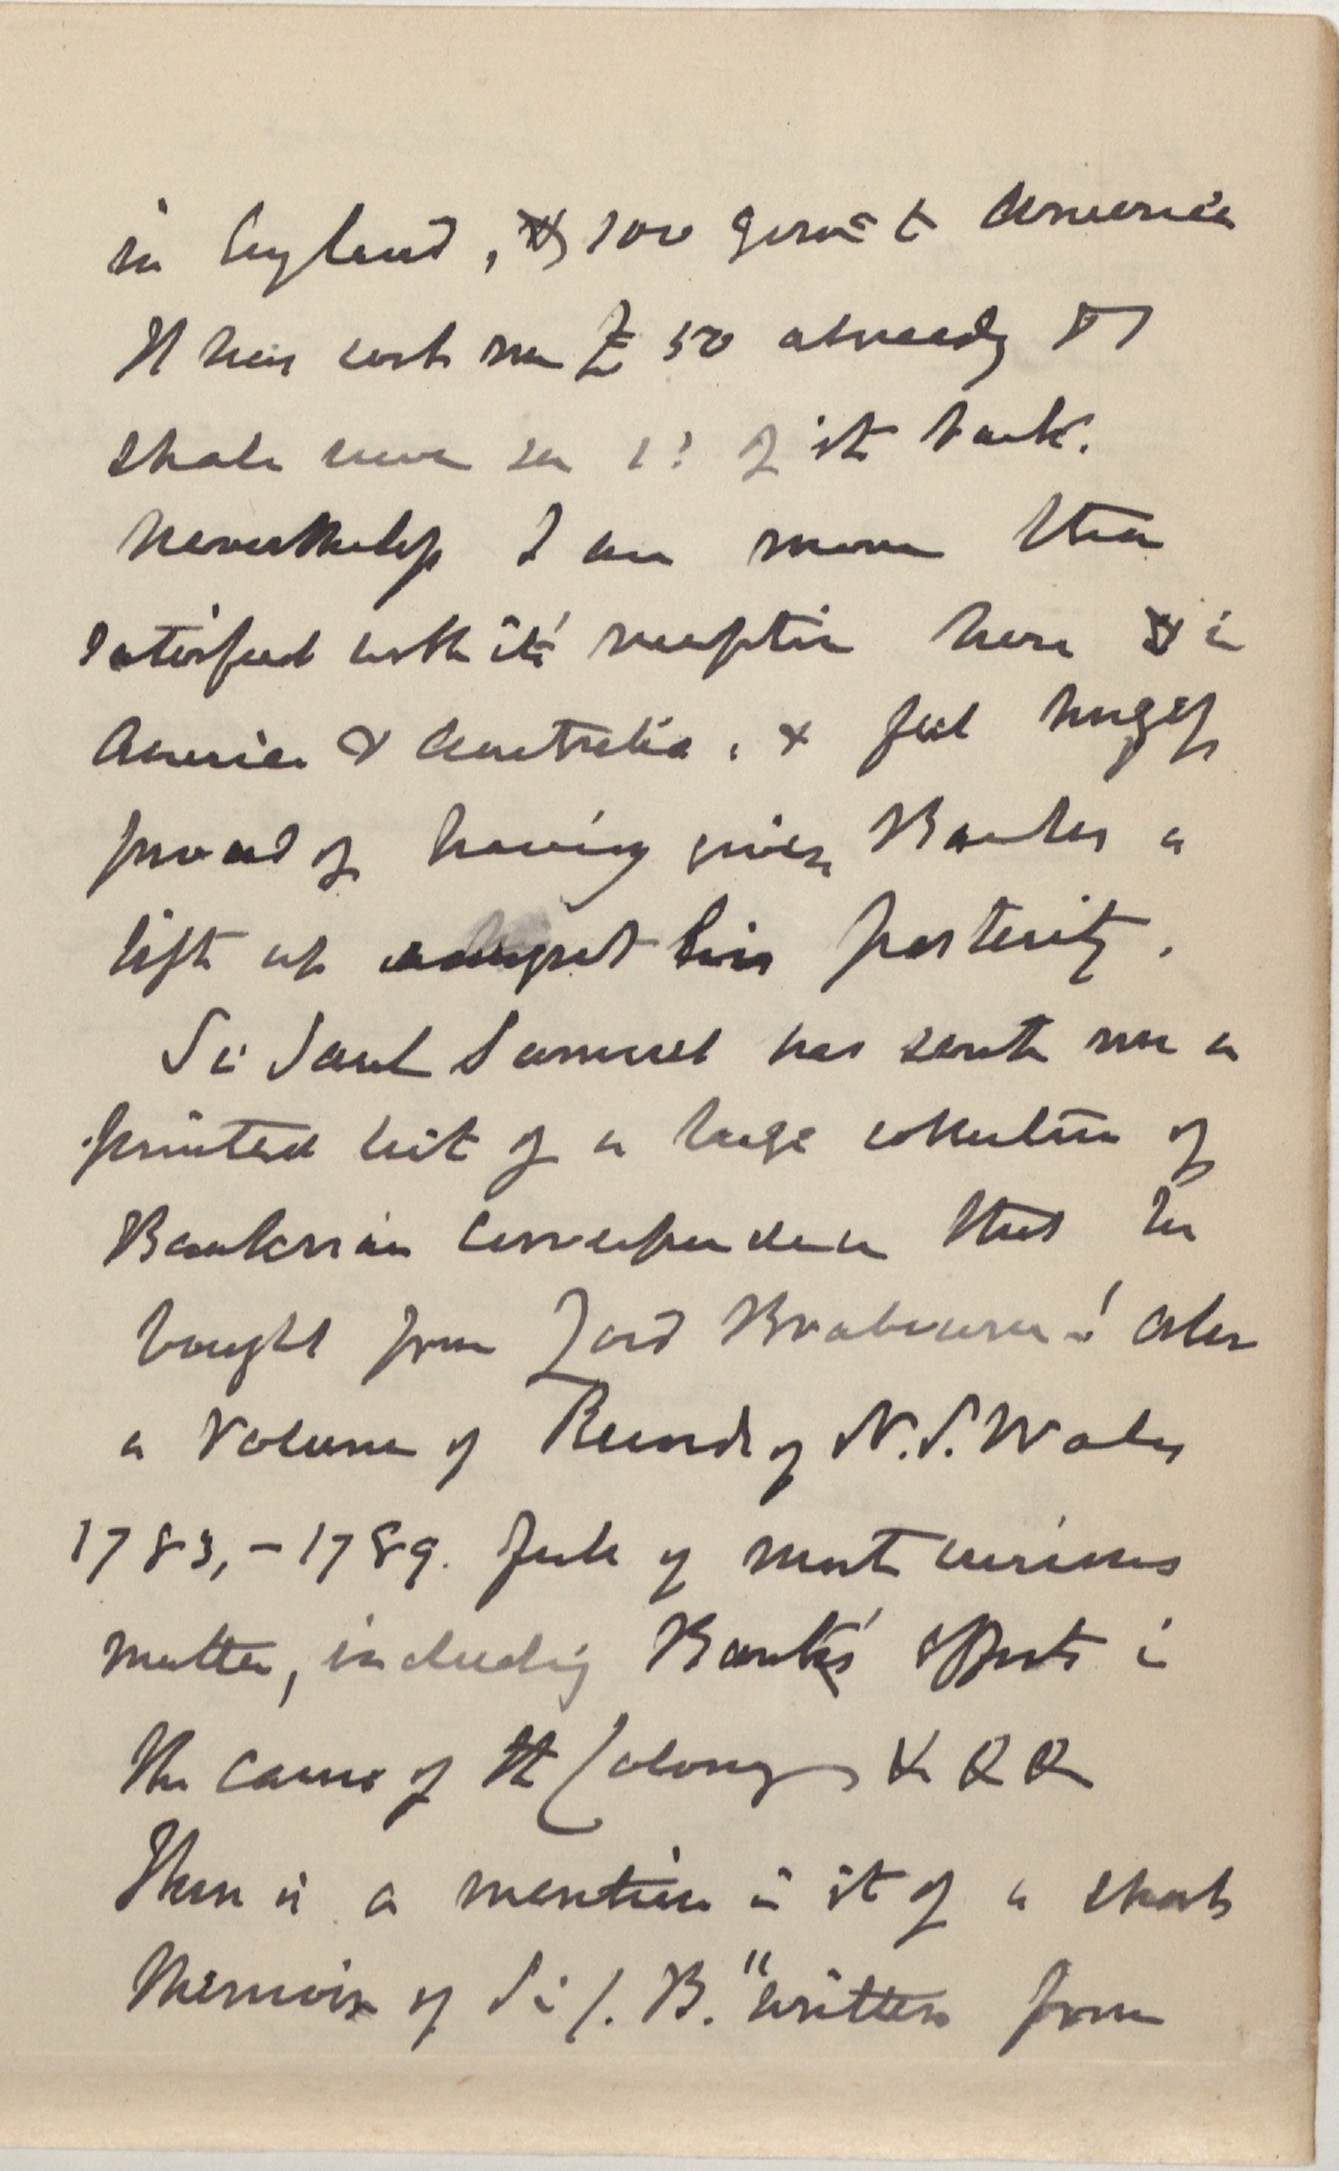 in England, & 100 gone to America
It has cost me £50 already & I
shall never see 1/- of it back.
Nevertheless I am more than
satisfied with its' reception here & in
America & Australia, & feel hugely
proud of having given Banks a
lift up amongst his posterity.
Sir Saul Samuel has sent me a
printed list of a large collection of
Banksian correspondence that he
bought from Lord Brabourne! also
a Volume of Records of N.S. Wales
1783,-1789. full of most curious
matter, including Banks' efforts in
the cause of the Colony, & & &
There is a mention in it of a short
Memoir of Sir J. B. "written from